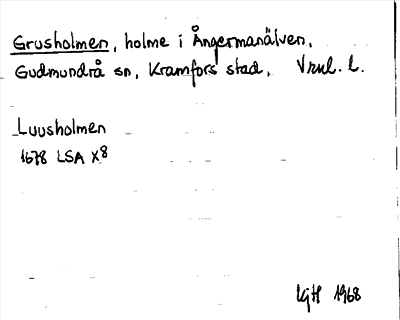 Grusholmen, holme i Ångermanälven,
Gudmundrå sn, Kramfors stad, Vnl. l.
Luusholmen
1678 LSA X8
LgH 1968